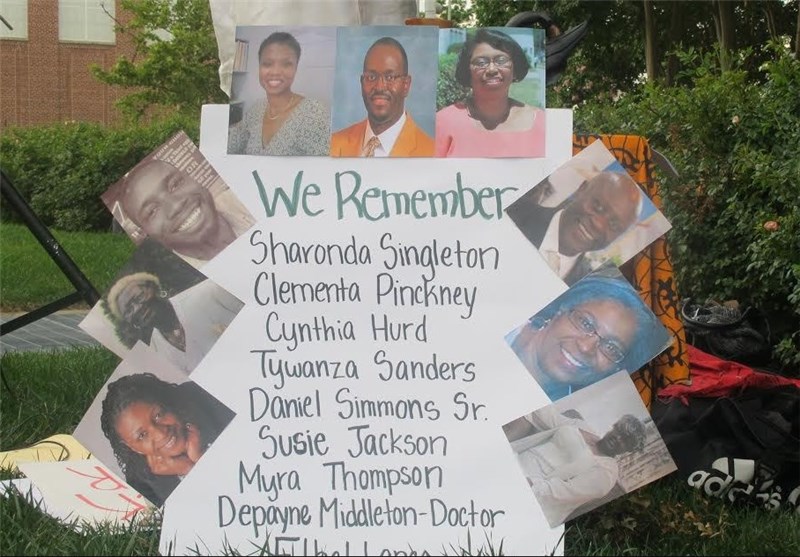 We Remember
Sharonda Singleton
Clementa Pinckney
Cynthia Hurd
Tywanza Sanders
Daniel Simmons Sr.
Susie Jackson
Myra Thompson
Depayne Middleton-Doctor
adidas